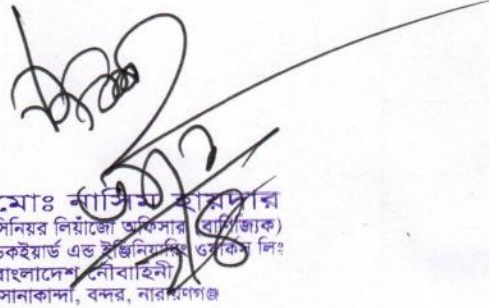 মোঃ নাসিম হায়দার
সিনিয়র লিয়াঁজো অফিসার (বাণিজ্যিক)
ডকইয়ার্ড এন্ড ইঞ্জিনিয়ারিং ওয়ার্কস লিঃ
বাংলাদেশ নৌবাহিনী
সোনাকান্দা, বন্দর, নারায়ণগঞ্জ